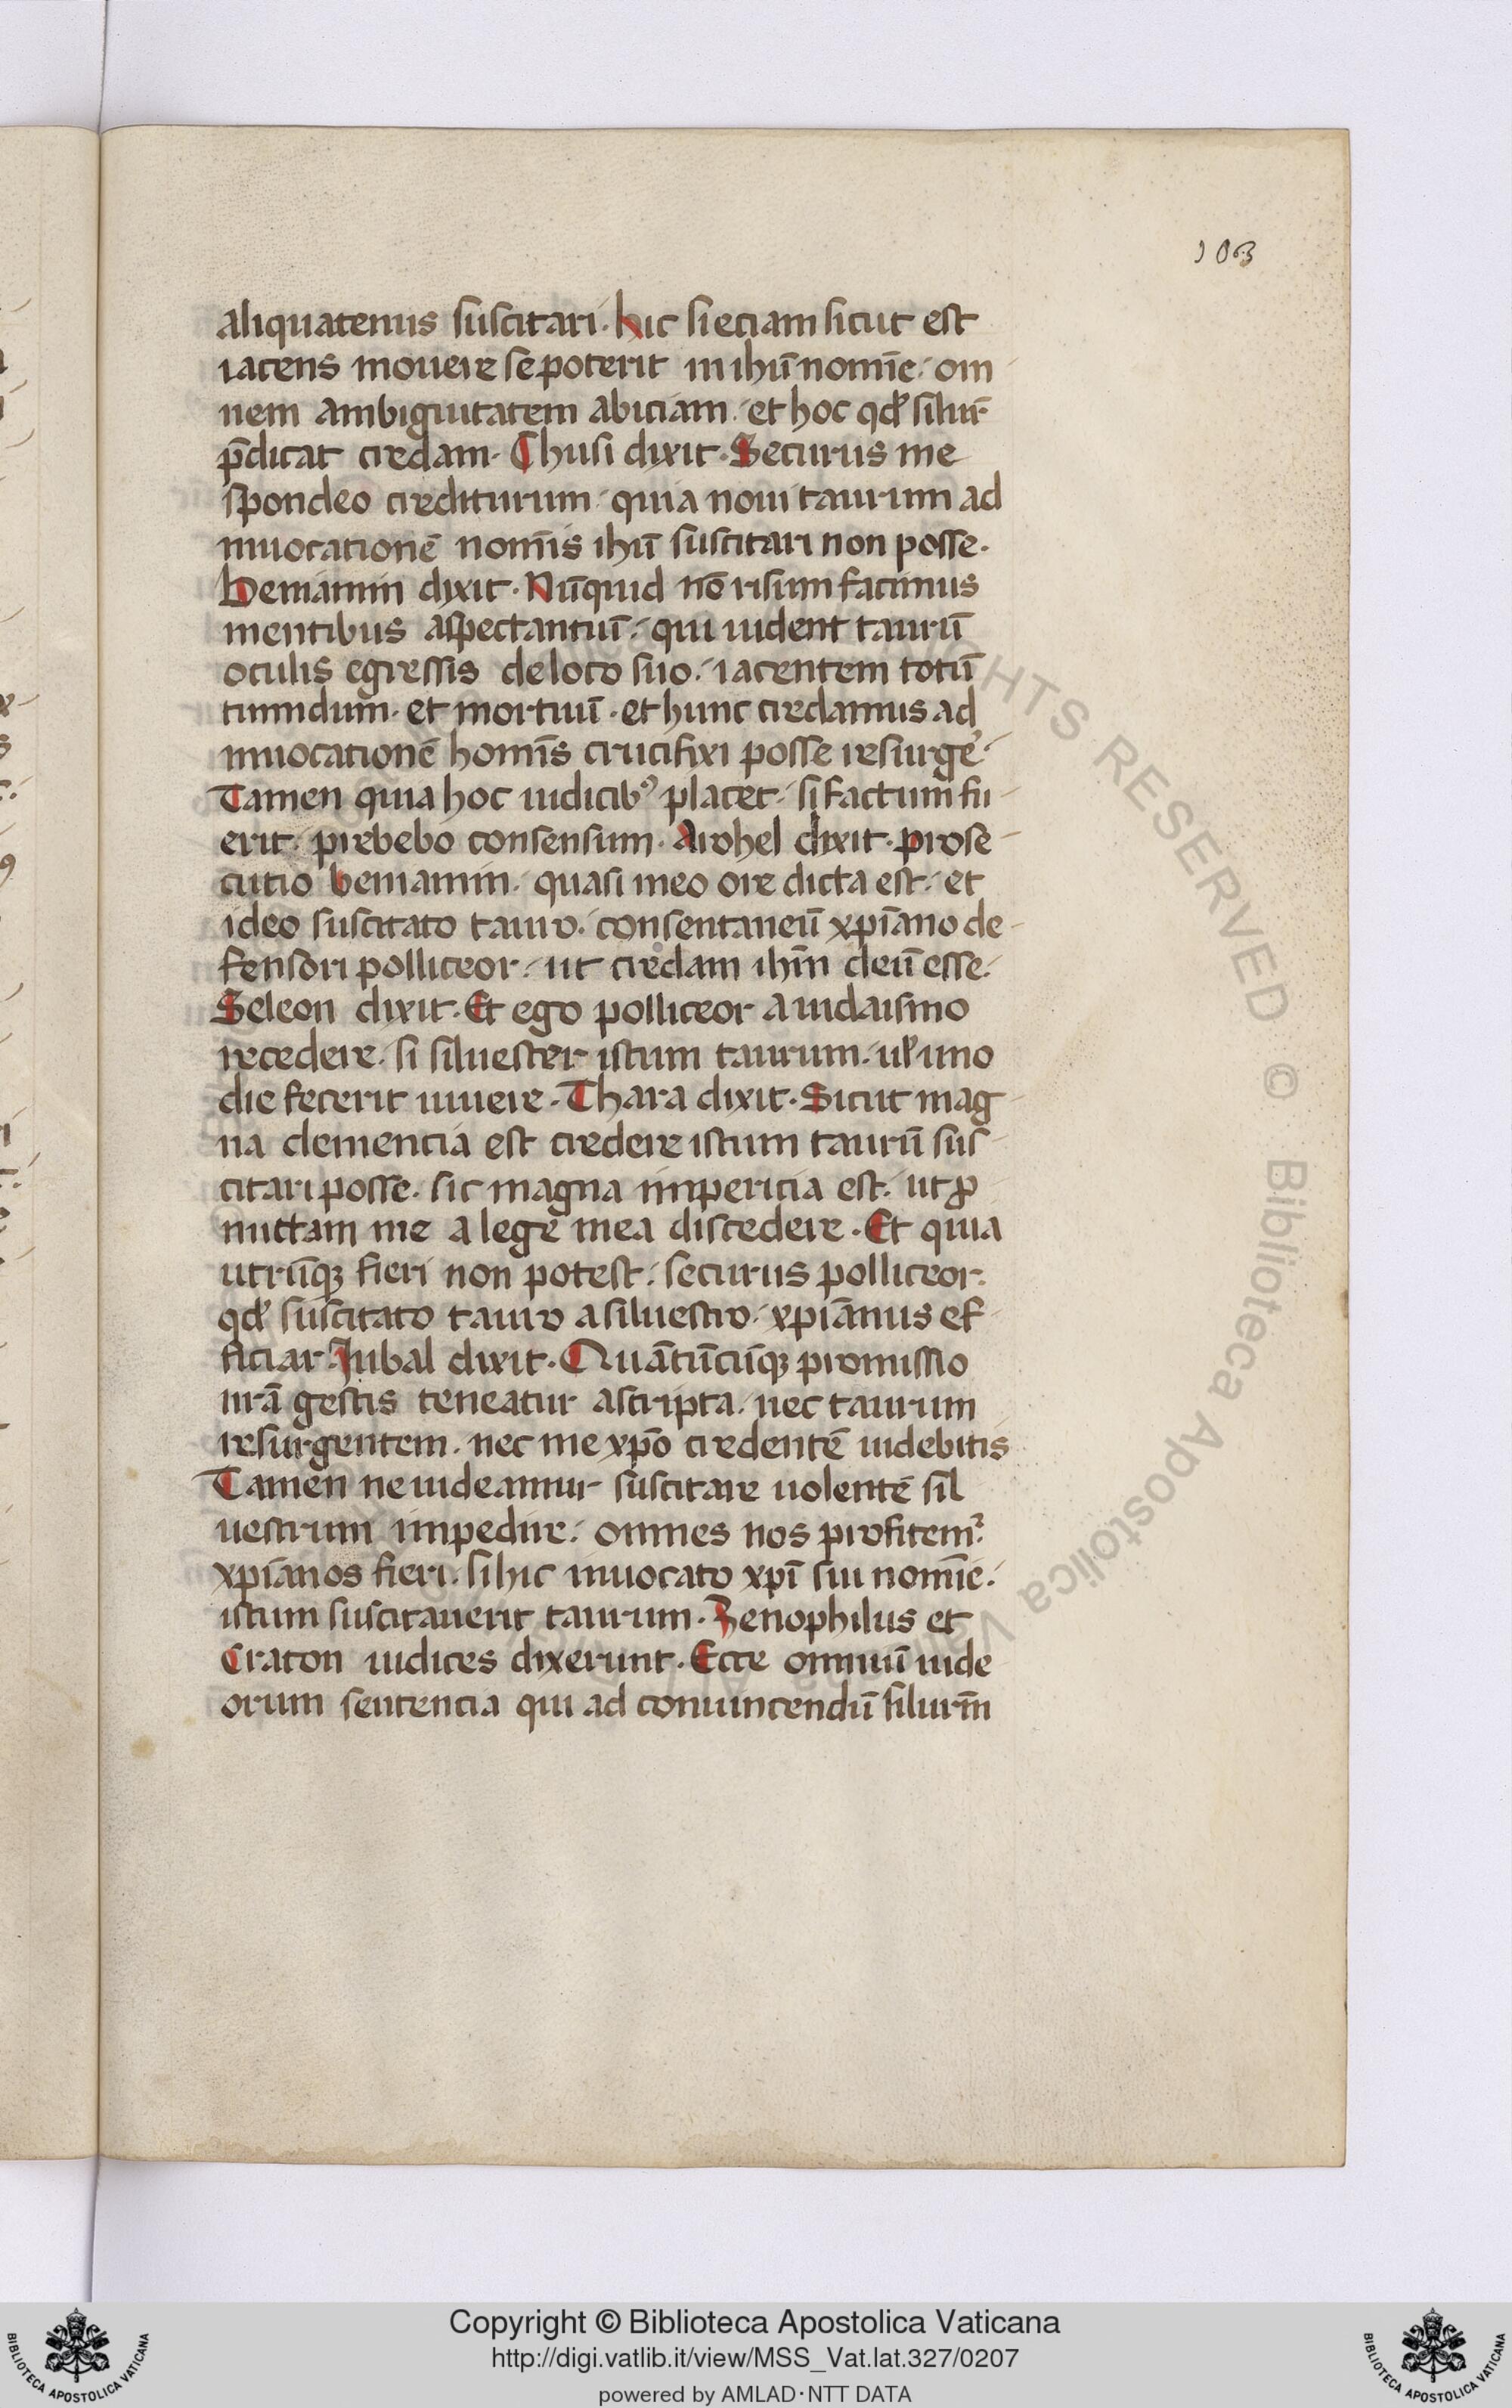 103
aliquatenus suscitari. hic si eciam sicut est
iacens mouere se poterit in ihū nomīe. om
nem ambiguitatem abiciam. et hoc qđ silur̄
p̄dicat credam. Chusi dixit. Securus me
spondeo crediturum. quia noui taurum ad
inuocationē nomīs ihū suscitari non posse.
beniamin dixit. Nūquid nō risum facimus
mentibus aspectantiū. qui uident taurū
oculis egressis de loco suo. iacentem totū
tumidum. et mortuū. et hunc credamus ad
inuocationē homīs crucifixi posse resurge᾽.
Tamen quia hoc iudicibꝰ placet. si factum fu
erit. prebebo consensum. Arohel dixit. prose
cutio beniamin. quasi meo ore dicta est. et
ideo suscitato tauro. consentaneū xp̄iano de
fensori polliceor. ut credam ih̄m deū esse.
Seleon dixit. Et ego polliceor a iudaismo
recedere. si siluester istum taurum. uł uno
die fecerit uiuere. Thara dixit. Sicut mag
na clemencia est credere istum taurū sus
citari posse. sic magna impericia est. ut ꝓ
mittam me a lege mea discedere. Et quia
utrūqꝫ fieri non potest. securus polliceor.
qđ suscitato tauro a siluestro. xp̄ianus ef
ficiar. Jubal dixit. Quātūcūqꝫ promissio
nr̄a gestis teneatur ascripta. nec taurum
resurgentem. nec me xp̄o credentē uidebitis
Tamen ne uideamur suscitare uolentē sil
uestrum impedire. omnes nos profitemᷣ.
xp̄ianos fieri. si hic inuocato xp̄i sui nomīe.
istum suscitauerit taurum. Zenophilus et
Craton iudices dixerunt. Ecce omniū iude
orum sentencia qui ad conuincendū silur̄m
RIGHTS RESERVED © Biblioteca Apostolica Vaticana
Copyright © Biblioteca Apostolica Vaticana
http://digi.vatlib.it/view/MSS_Vat.lat.327/0207
powered by AMLAD·NTT DATA
BIBLIOTECA APOSTOLICA VATICANA
BIBLIOTECA APOSTOLICA VATICANA